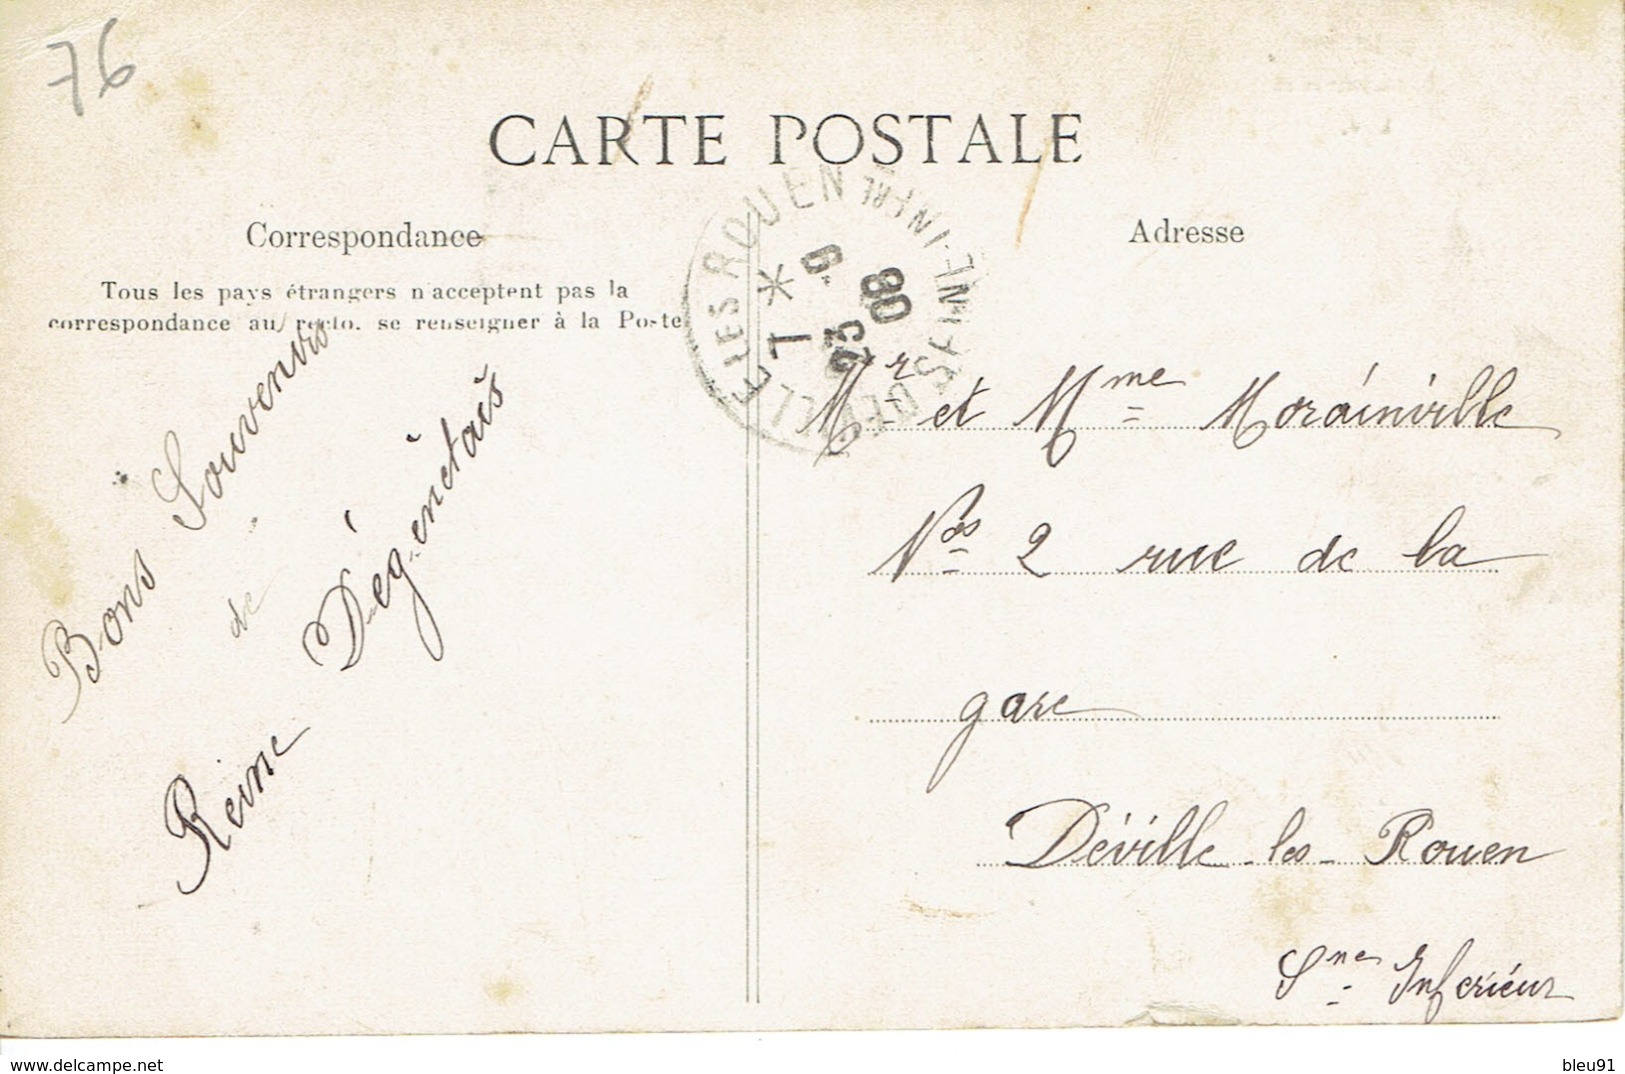 76
CARTE POSTALE
Correspondance
Tous les pays étrangers n'acceptent pas la
correspondance au recto. se renseigner à la Poste
Adresse
DEVILLE LES ROUEN
SEINE-INFRE
* 1
25
9
08
Bons Souvenirs
de
Reine Dégenétais
Mr et Mme Morainville
Nos 2 rue de la
gare
Déville-les-Rouen
Sne Inférieur
www.delcampe.net
bleu91